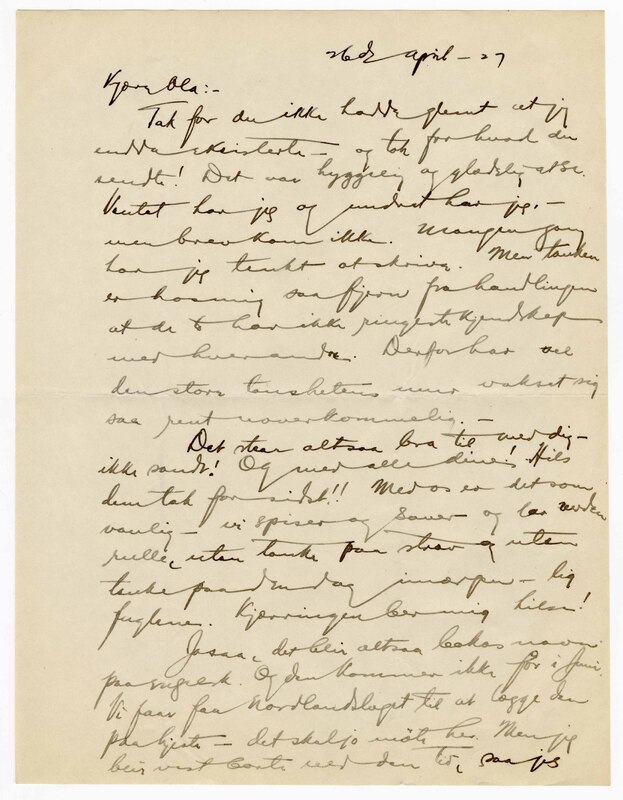 26de april – 27
Kjære Ola:-
Tak for du ikke hadde glemt at jeg
endda eksisterte – og tak for hvad du
sendte! Det var hyggelig og gladelig at se.
Ventet har jeg og undret har jeg, –
men brev kom ikke. Mangen gang
har jeg tenkt at skrive. Men tanken
er hos mig saa fjern fra handlingen
at de to har ikke ringeste kjendskap
med hverandre. Derfor har vel
den store taushetens mur vokset sig
saa rent uoverkommelig. –
Det staar altsaa bra til med dig –
ikke sandt! Og med alle dine! Hils
dem tak for sidst!! Med os er det som
vanlig – vi spiser og sover og lar verden
rulle, uten tanke paa strev og uten
tanke paa den dag imorgen – lig
fuglene. Kjærringen ber mig hilse!
Jasaa, der blir altsaa bokas navn
paa engelsk. Og den kommer ikke før i Juni
Vi faar faa Nordlandslaget til at lægge den
paa hjerte – det skal jo møte her. Men jeg
blir vist borte ved den tid, saa jeg